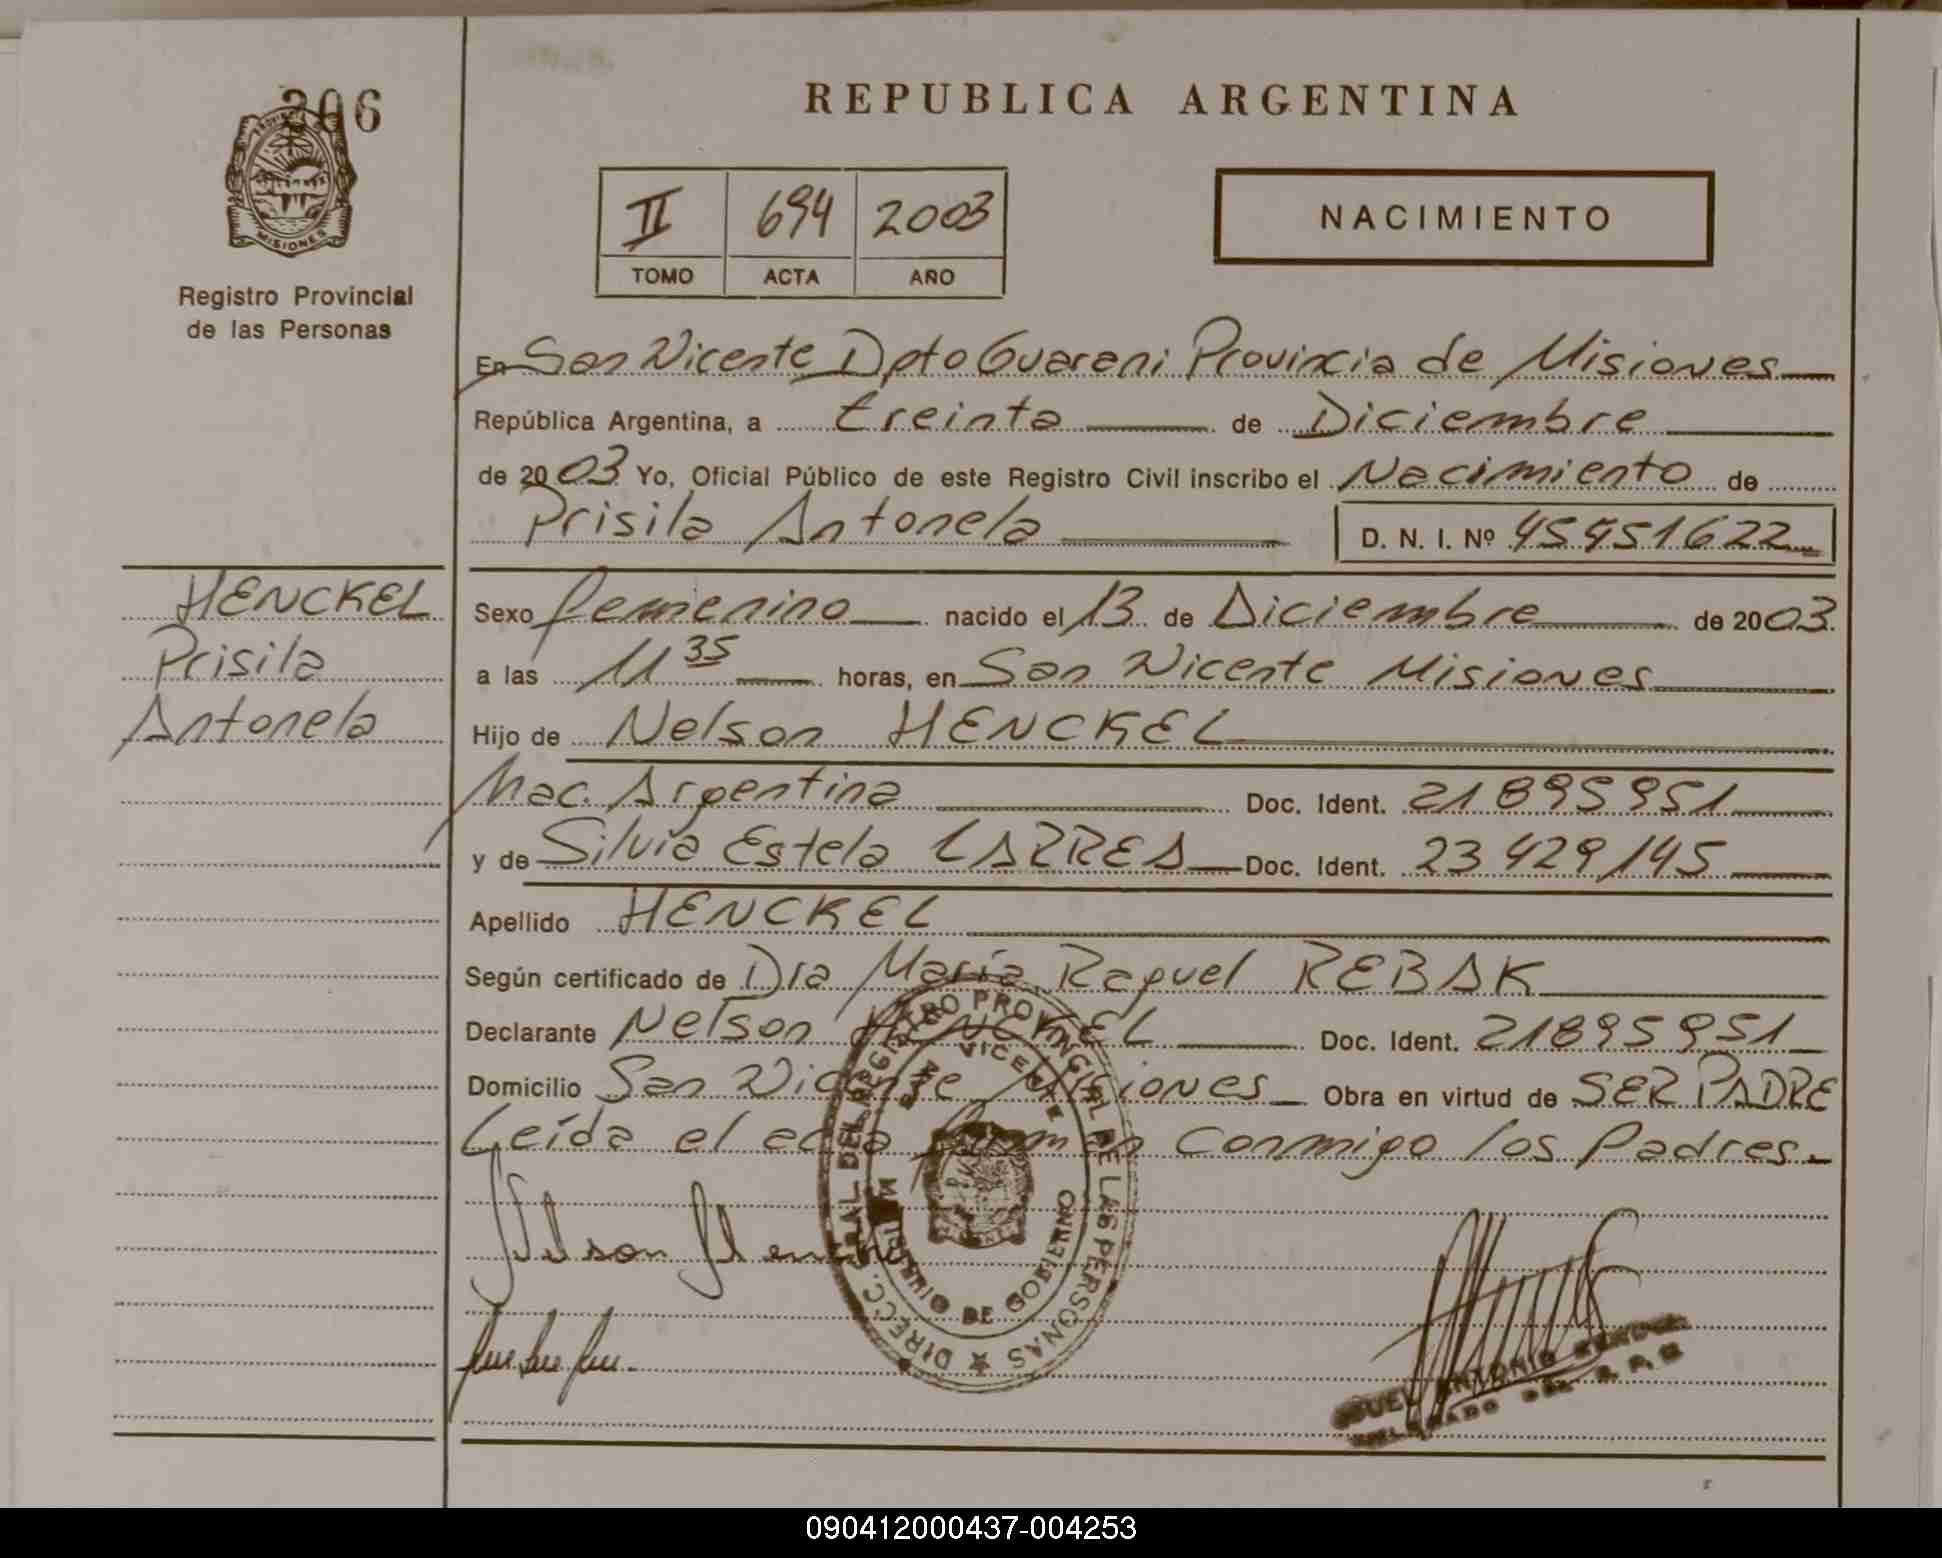 306
PROVINCIA
MISIONES
Registro Provincial
de las Personas
HENCKEL
Prisila
Antonela
REPUBLICA ARGENTINA
II 694 2003
TOMO ACTA AÑO
NACIMIENTO
En San Vicente Dpto Guarani Provincia de Misiones
República Argentina, a treinta de Diciembre
de 2003 Yo, Oficial Público de este Registro Civil inscribo el Nacimiento de
Prisila Antonela D. N. I. Nº 45451622
Sexo femenino nacido el 13 de Diciembre de 2003.
a las 11 35 horas, en San Vicente Misiones
Hijo de Nelson HENCKEL
Nac. Argentina Doc. Ident. 21895951
y de Silvia Estela Doc. Ident. 23429145
Apellido HENCKEL
Según certificado de Dra María Raquel REBAK
Declarante Nelson HENCKEL Doc. Ident. 21895951
Domicilio San Vicente Misiones Obra en virtud de SER PADRE
Leída el acta firman conmigo los Padres.
Nelson
DIRECC. GRAL DEL REGISTRO PROVINCIAL DE LAS PERSONAS
SAN VICENTE
MINISTERIO DE GOBIERNO
ANTONIO
090412000437-004253